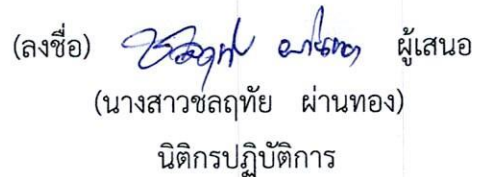 (ลงชื่อ) ผู้เสนอ
(นางสาวชลฤทัย ผ่านทอง)
นิติกรปฏิบัติการ